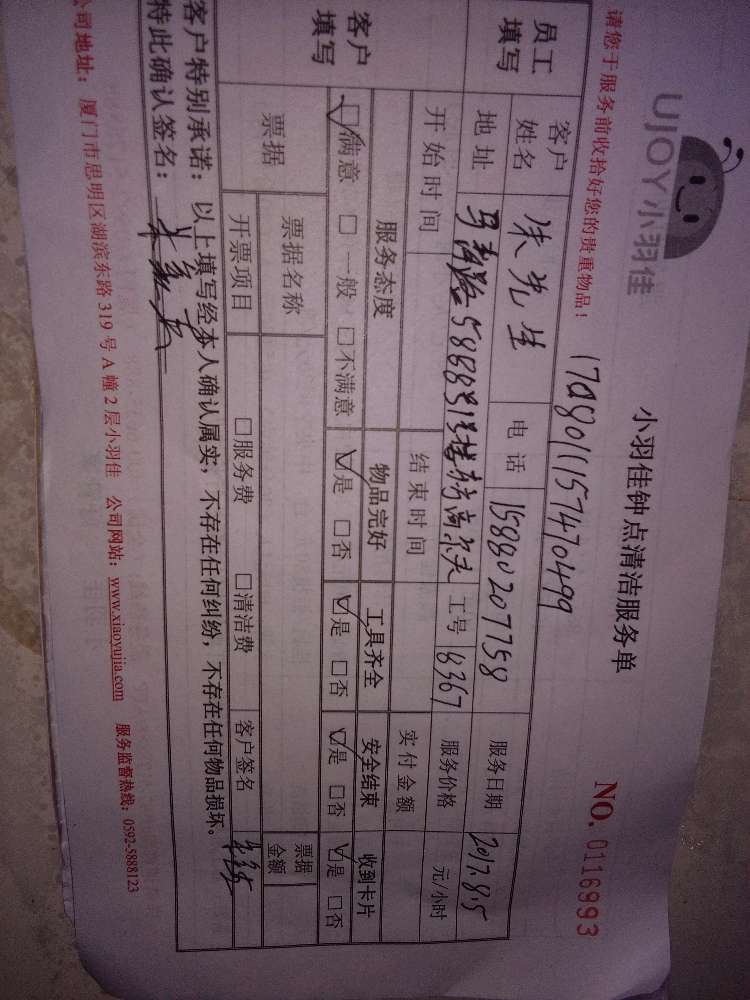 UJOY小羽佳
小羽佳钟点清洁服务单
NO. 0116993
请您于服务前收拾好您的贵重物品！
17a8011157470499
员工填写
客户姓名 朱先生 电话 15880207758 服务日期 2017.8.5
地址 马青路588号 工号 8367 服务价格 元/小时
开始时间 结束时间 实付金额
客户填写
服务态度 物品完好 工具齐全 安全结束 收到卡片
☑满意 □一般 □不满意 ☑是 □否 ☑是 □否 ☑是 □否 ☑是 □否
票据 票据名称 票据金额
开票项目 □服务费 □清洁费 客户签名
客户特别承诺：以上填写经本人确认属实，不存在任何纠纷，不存在任何物品损坏。
特此确认签名：
公司地址：厦门市思明区湖滨东路 319 号 A 幢 2 层小羽佳 公司网站：www.xiaoyujia.com 服务监督热线：0592-5888123